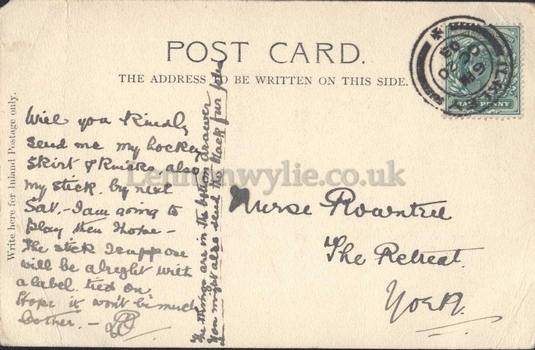 POST CARD.
THE ADDRESS TO BE WRITTEN ON THIS SIDE.
HALFPENNY
Write here for Inland Postage only.
Will you kindly
send me my hockey
skirt & knicks also
my stick by next
Sat. - I am going to
play then I hope -
The stick I suppose
will be alright with
a label tied on
Hope it won't be much
bother. -
The things are in the bottom drawer
You might also send the black fur
Nurse Rowntree
The Retreat
York.
Lennonwylie.co.uk